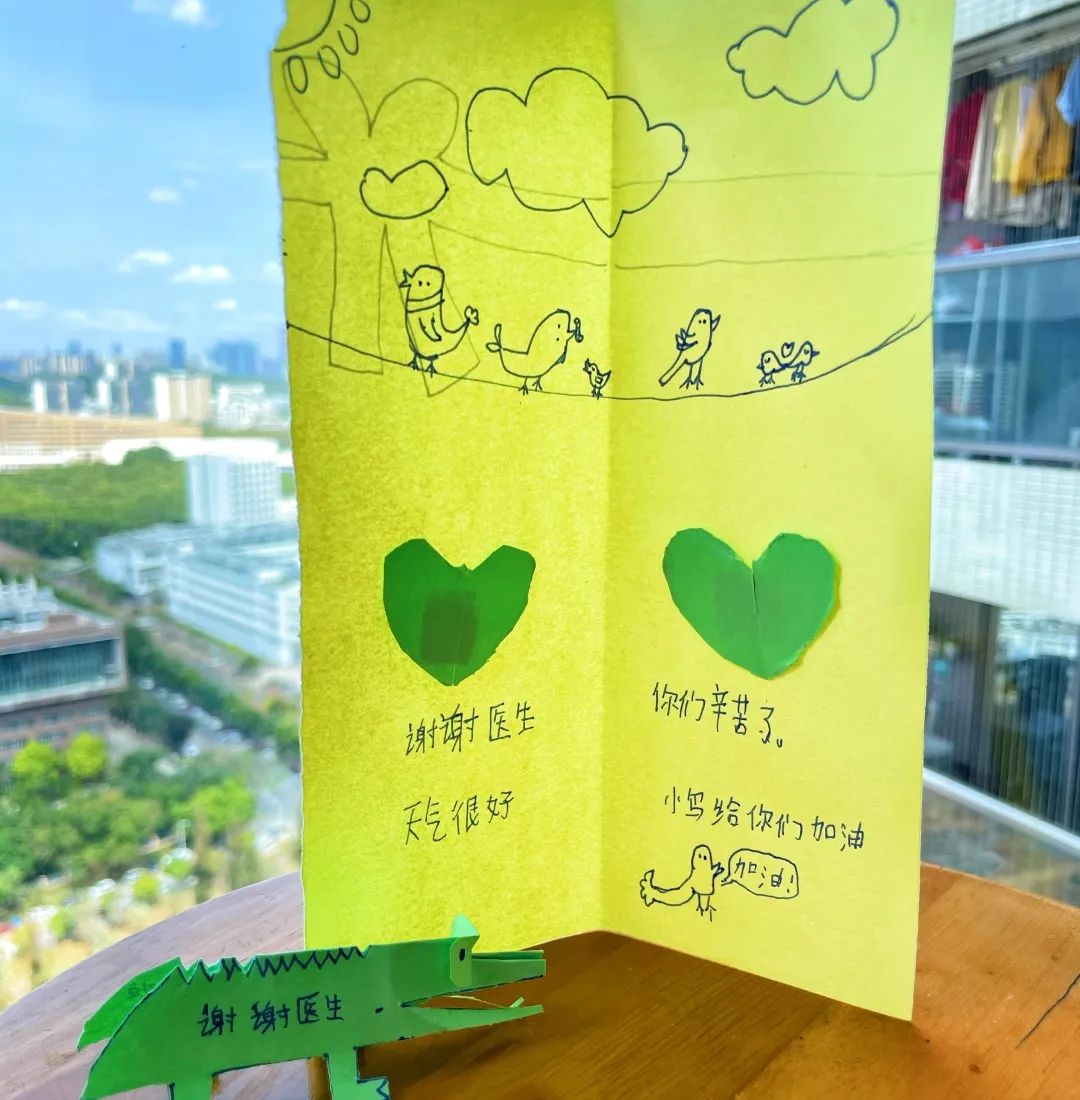 谢谢医生
天气很好
你们辛苦了。
小鸟给你们加油
加油!
谢谢医生